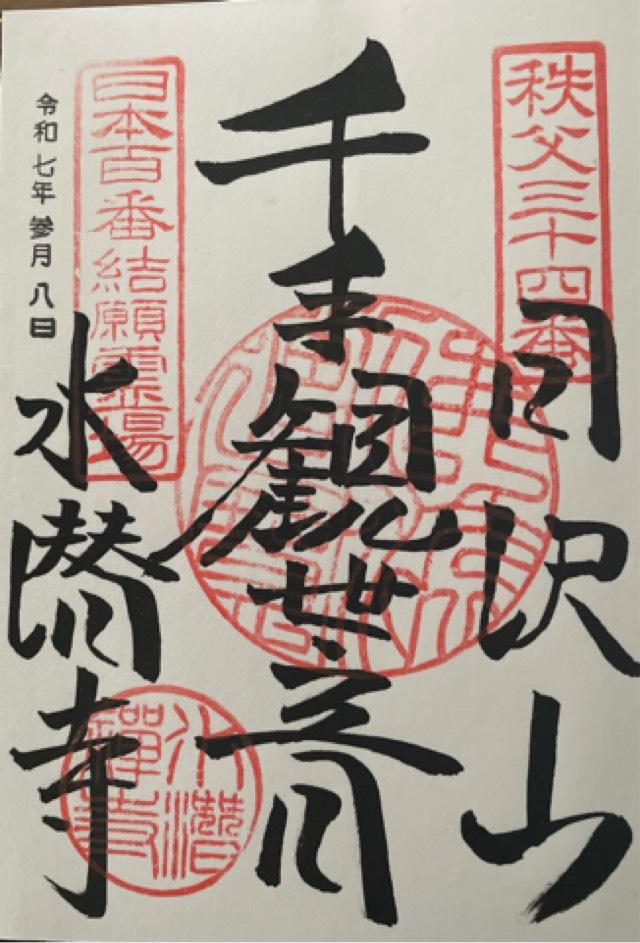 秩父三十四番
日沢山
千手観世音
日本百番結願霊場
水潜寺
水潜禪寺
令和七年 參月 八日